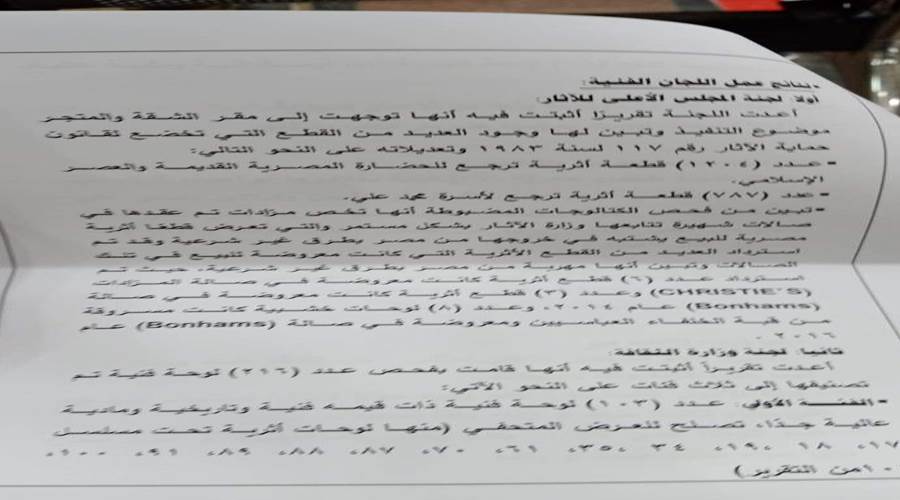 نتائج عمل اللجان الفنية:
أولا: لجنة المجلس الأعلى للآثار:
أعدت اللجنة تقريرًا أثبتت فيه أنها توجهت إلى مقر الشقة والمتجر
موضوع التنفيذ وتبين لها وجود العديد من القطع التي تخضع لقانون
حماية الآثار رقم ١١٧ لسنة ١٩٨٣ وتعديلاته على النحو التالي:
- عدد (١٢٠٤) قطعة أثرية ترجع للحضارة المصرية القديمة والعصر
الإسلامي.
- عدد (٧٨٧) قطعة أثرية ترجع لأسرة محمد علي.
- تبين من فحص الكتالوجات المضبوطة أنها تخص مزادات تم عقدها في
صالات شهيرة تتابعها وزارة الآثار بشكل مستمر والتي تعرض قطعًا أثرية
مصرية للبيع يشتبه في خروجها من مصر بطرق غير شرعية وقد تم
استرداد العديد من القطع الأثرية التي كانت معروضة للبيع في تلك
الصالات وتبين أنها مهربة من مصر بطرق غير شرعية، حيث تم
استرداد عدد (٦) قطع أثرية كانت معروضة في صالة المزادات
(CHRISTIE'S) وعدد (٣) قطع أثرية كانت معروضة في صالة
(Bonhams) عام ٢٠١٤، وعدد (٨) لوحات خشبية كانت مسروقة
من قبة الخلفاء العباسيين ومعروضة في صالة (Bonhams) عام
٢٠١٦.
ثانيا: لجنة وزارة الثقافة:
أعدت تقريرًا أثبتت فيه أنها قامت بفحص عدد (٢١٦) لوحة فنية تم
تصنيفها إلى ثلاث فئات على النحو الآتي:
- الفئة الأولى: عدد (١٠٣) لوحة فنية ذات قيمه فنية وتاريخية ومادية
عالية جدًا، تصلح للعرض المتحفي (منها لوحات أثرية تحت مسلسل
١٧، ١٨، ١٩، ٣٤، ٣٥، ٦١، ٧٠، ٨٧، ٨٨، ٨٩، ٩١، ١٠٠،
من التقرير)